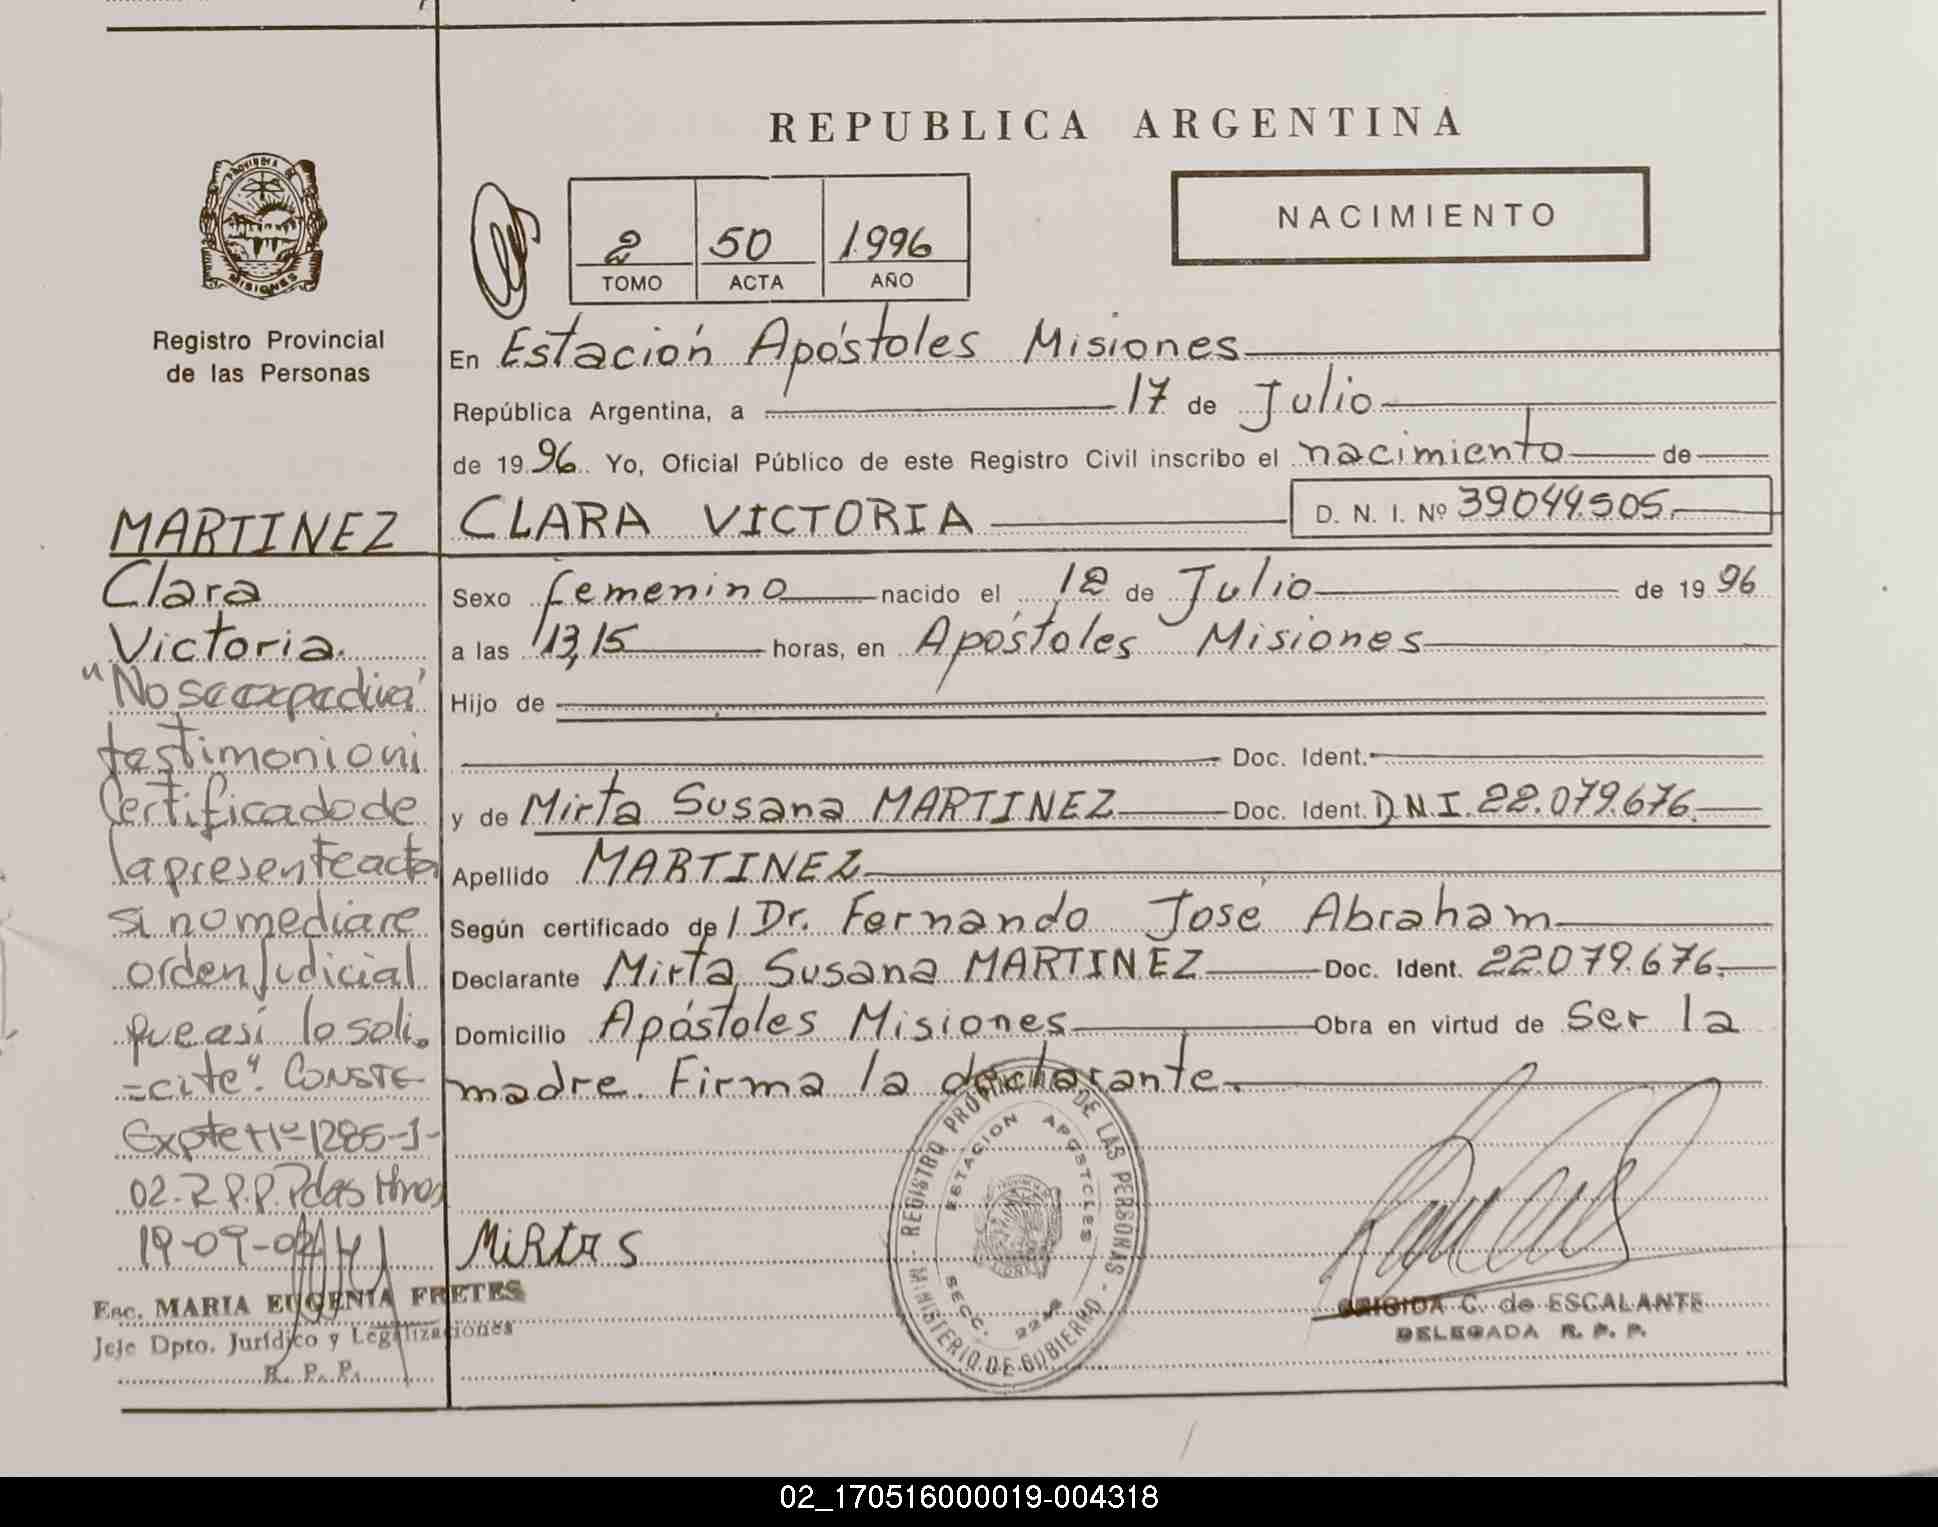 REPUBLICA ARGENTINA
NACIMIENTO
2 50 1996
TOMO ACTA AÑO
PROVINCIA DE
MISIONES
Registro Provincial
de las Personas
En Estación Apóstoles Misiones
República Argentina, a 17 de Julio
de 1996. Yo, Oficial Público de este Registro Civil inscribo el nacimiento de
CLARA VICTORIA D. N. I. Nº 39044.505.
Sexo femenino nacido el 12 de Julio de 1996
a las 13,15 horas, en Apóstoles Misiones
Hijo de
Doc. Ident.
y de Mirta Susana MARTINEZ Doc. Ident. D.N.I. 22.079.676.
Apellido MARTINEZ
Según certificado de/ Dr. Fernando José Abraham
Declarante Mirta Susana MARTINEZ Doc. Ident. 22.079.676.
Domicilio Apóstoles Misiones Obra en virtud de ser la
madre. Firma la declarante.
MARTINEZ
Clara
Victoria.
"No se expedirá
testimonio ni
Certificado de
la presente acta
si no mediare
orden Judicial
que así lo soli-
=cite". CONSTE
Expte Nº 1285-J-
02-R.P.P. Pdas Mnes
19-09-02
Esc. MARIA EUGENIA FRETES
Jefe Dpto. Jurídico y Legalizaciones
R. P. P.
Mirta S
REGISTRO PROVINCIAL DE LAS PERSONAS - MINISTERIO DE GOBIERNO -
ESTACION APOSTOLES
SECC.
BRIGIDA C. de ESCALANTE
DELEGADA R. P. P.
02_170516000019-004318